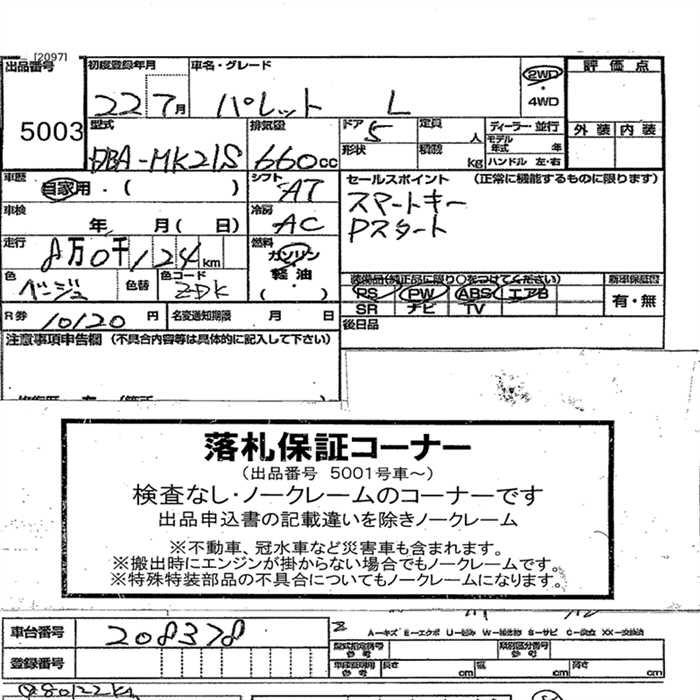 [2097]
出品番号 初度登録年月 車名・グレード 2WD・4WD 評価点
22 7月 パレット L
5003 外装 内装
型式 排気量 ドア 5 定員 人 ディーラー・並行
DBA-MK21S 660cc 形状 積載 kg モデル年式 年 ハンドル 左・右
車歴 自家用・( ) シフト AT セールスポイント (正常に機能するものに限ります)
車検 年 月( 日) 冷房 AC スマートキー
Pスタート
走行 8万0千124km 燃料 ガソリン 軽油 ( )
色 ベージュ 色替 色コード ZDK
装備品(純正品に限り○をつけてください) 新車保証書
PS PW ABS エアB 有・無
SR ナビ TV
R券 10120円 名変通知期限 月 日 後日品
注意事項申告欄 (不具合内容等は具体的に記入して下さい)
落札保証コーナー
(出品番号 5001号車~)
検査なし・ノークレームのコーナーです
出品申込書の記載違いを除きノークレーム
※不動車、冠水車など災害車も含まれます。
※搬出時にエンジンが掛からない場合でもノークレームです。
※特殊特装部品の不具合についてもノークレームになります。
車台番号 208378
A-キズ E-エクボ U-凹み W-補修跡 S-サビ C-腐蝕 XX-交換済
登録番号 型式指定番号 参考 類別区分番号 参考
車検証明用 参考 長さ cm 幅 cm 高さ cm